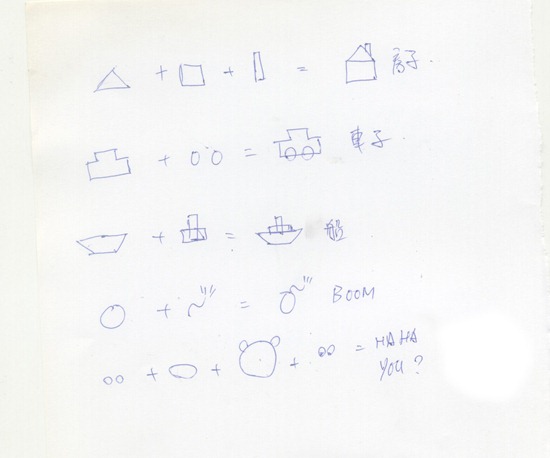 + + = 房子.
+ = 車子.
+ = 船
+ = BOOM
+ + + = HAHA
YOU?